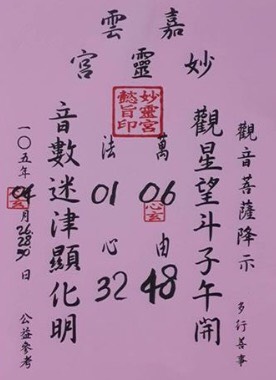 嘉雲
妙靈宮
妙靈宮
懿旨印
觀音菩薩降示
多行善事
觀星望斗子午開
萬 06 由 48
心玄
法 01 心 32
音數迷津顯化明
一〇五年04月26 28 30日
玄
公益參考